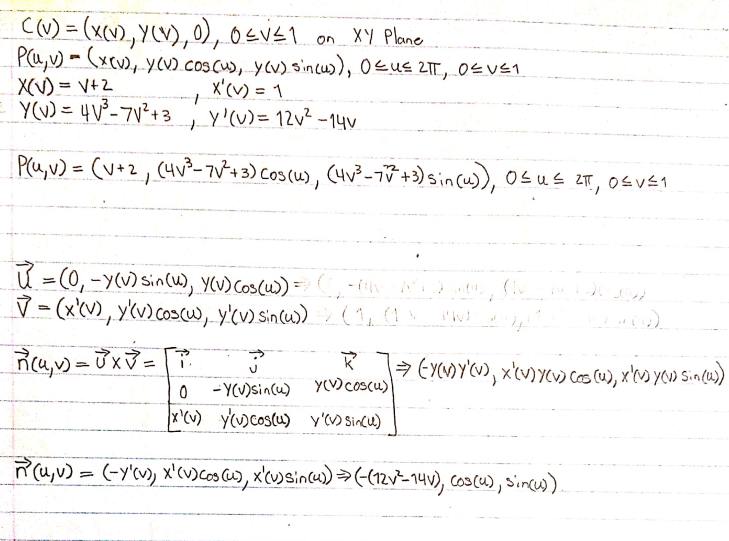 C(v) = (x(v), y(v), 0), 0≤v≤1 on XY Plane
P(u,v) = (x(v), y(v) cos(u), y(v) sin(u)), 0≤u≤ 2π, 0≤v≤1
X(v) = v+2 , x'(v) = 1
Y(v) = 4v³-7v²+3 , y'(v) = 12v² -14v
P(u,v) = (v+2, (4v³-7v²+3) cos(u), (4v³-7v²+3) sin(u)), 0≤u≤ 2π, 0≤v≤1
U⃗ = (0, -y(v) sin(u), y(v) cos(u))
V⃗ = (x'(v), y'(v) cos(u), y'(v) sin(u))
n⃗(u,v) = U⃗ x V⃗ = [ i⃗ j⃗ k⃗ ] ⇒ (-y(v)y'(v), x'(v)y(v) cos(u), x'(v) y(v) sin(u))
0 -y(v)sin(u) y(v)cos(u)
x'(v) y'(v)cos(u) y'(v)sin(u)
n⃗(u,v) = (-y'(v), x'(v)cos(u), x'(v)sin(u)) ⇒ (-(12v²-14v), cos(u), sin(u))